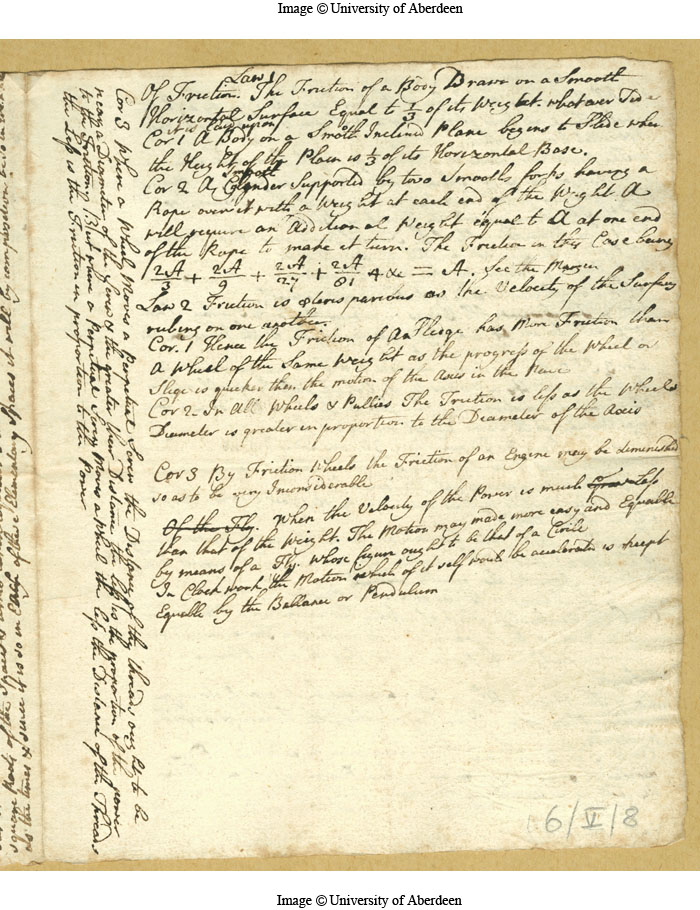 Image © University of Aberdeen
Law 1
Of Friction. The Friction of a Body Drawn on a Smooth
Horizontal Surface Equal to 1/3 of its Weight. whatever Side
it is laid upon
Cor 1 A Body on a Smooth Inclined Plane begins to Slide when
the Height of the Plain is 1/3 of its Horizontal Base.
Smooth
Cor 2 A Cylinder Supported by two Smooth forks having a
Rope over it with a Weight at each end of the Weight A
will require an Additional Weight equal to A at one end
of the Rope to make it turn. The Friction in this Case being
2A/3 + 2A/9 + 2A/27 + 2A/81 + &c = A. See the Margin
Law 2 Friction is as the Velocity of the Surfaces
rubing on one another.
Cor. 1 Hence the Friction of a Sledge has More Friction than
A Wheel of the Same Weight as the progress of the Wheel or
Slege is quicker than the motion of the Axis in the Nave
Cor 2 In All Wheels & Pullies The Friction is less as the Wheels
Diameter is greater in proportion to the Diameter of the Axis
Cor 3 By Friction Wheels the Friction of an Engine may be diminished
so as to be very Inconsiderable
Of the Fly. When the Velocity of the Power is much Less
than that of the Weight. The Motion may made more easy and Equable
by means of a Fly. whose figure ought to be that of a Circle
In Clock work the Motion which of it self would be accelerate is keept
Equable by the Ballance or Pendulum
Cor 3 When a Wheel Moves a perpetual Screw the Distance of the threads ought to be
near a Diameter of the Screw & the greater their Distance the less is the proportion of the power
to the Friction. But when a Perpetual Screw Moves a Wheel the less the Distance of the Threads
the less is the Friction in proportion to the Power
square Roots of the Spaces
as the times & since it is so in Each of these Elementary Spaces it will by composition be so in
6/V/8
Image © University of Aberdeen